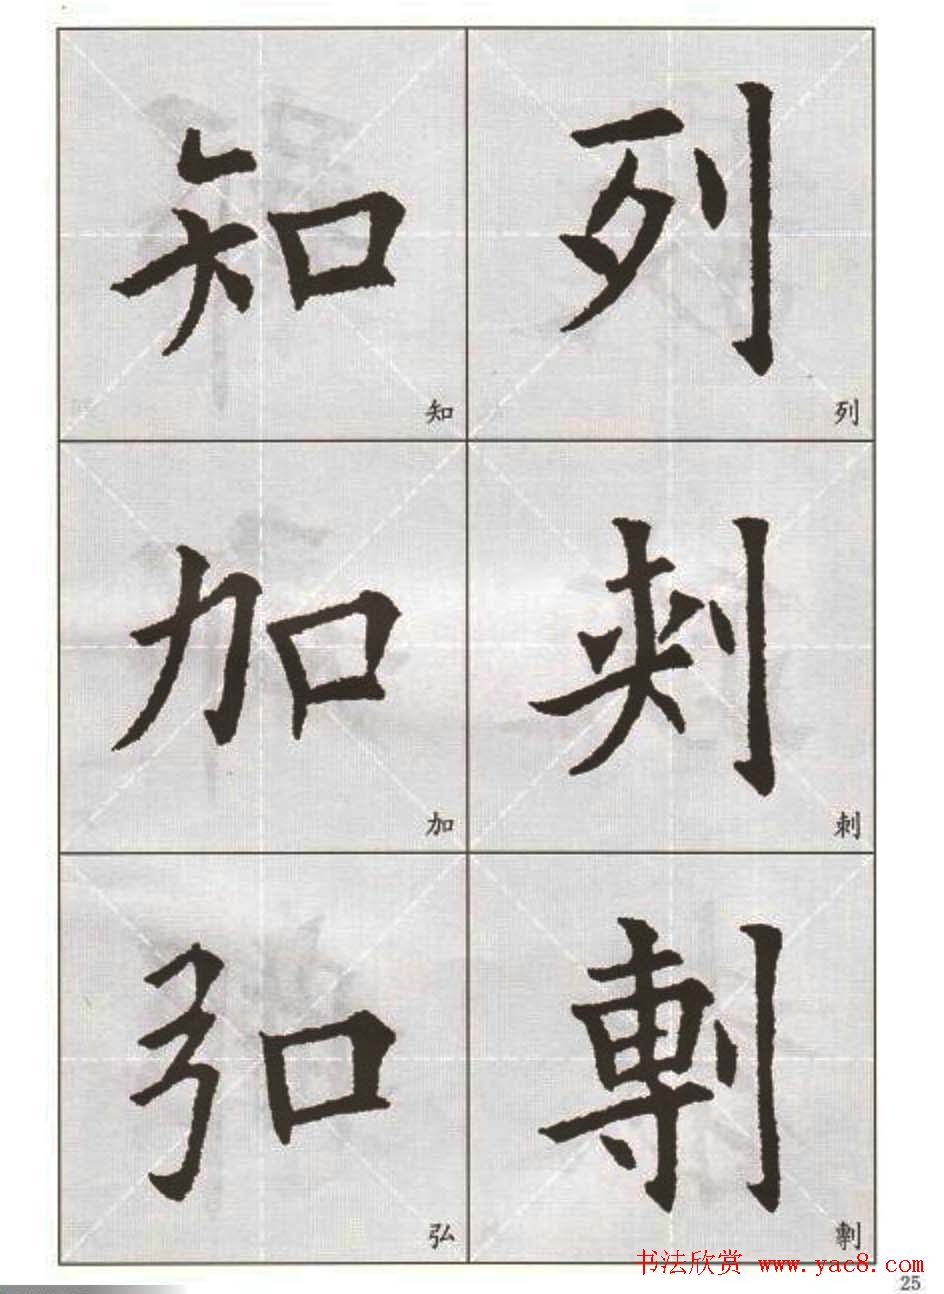 知 列
知 列
加 刾
加 刺
弘 剸
弘 剸
书法欣赏 www.yac8.com
25